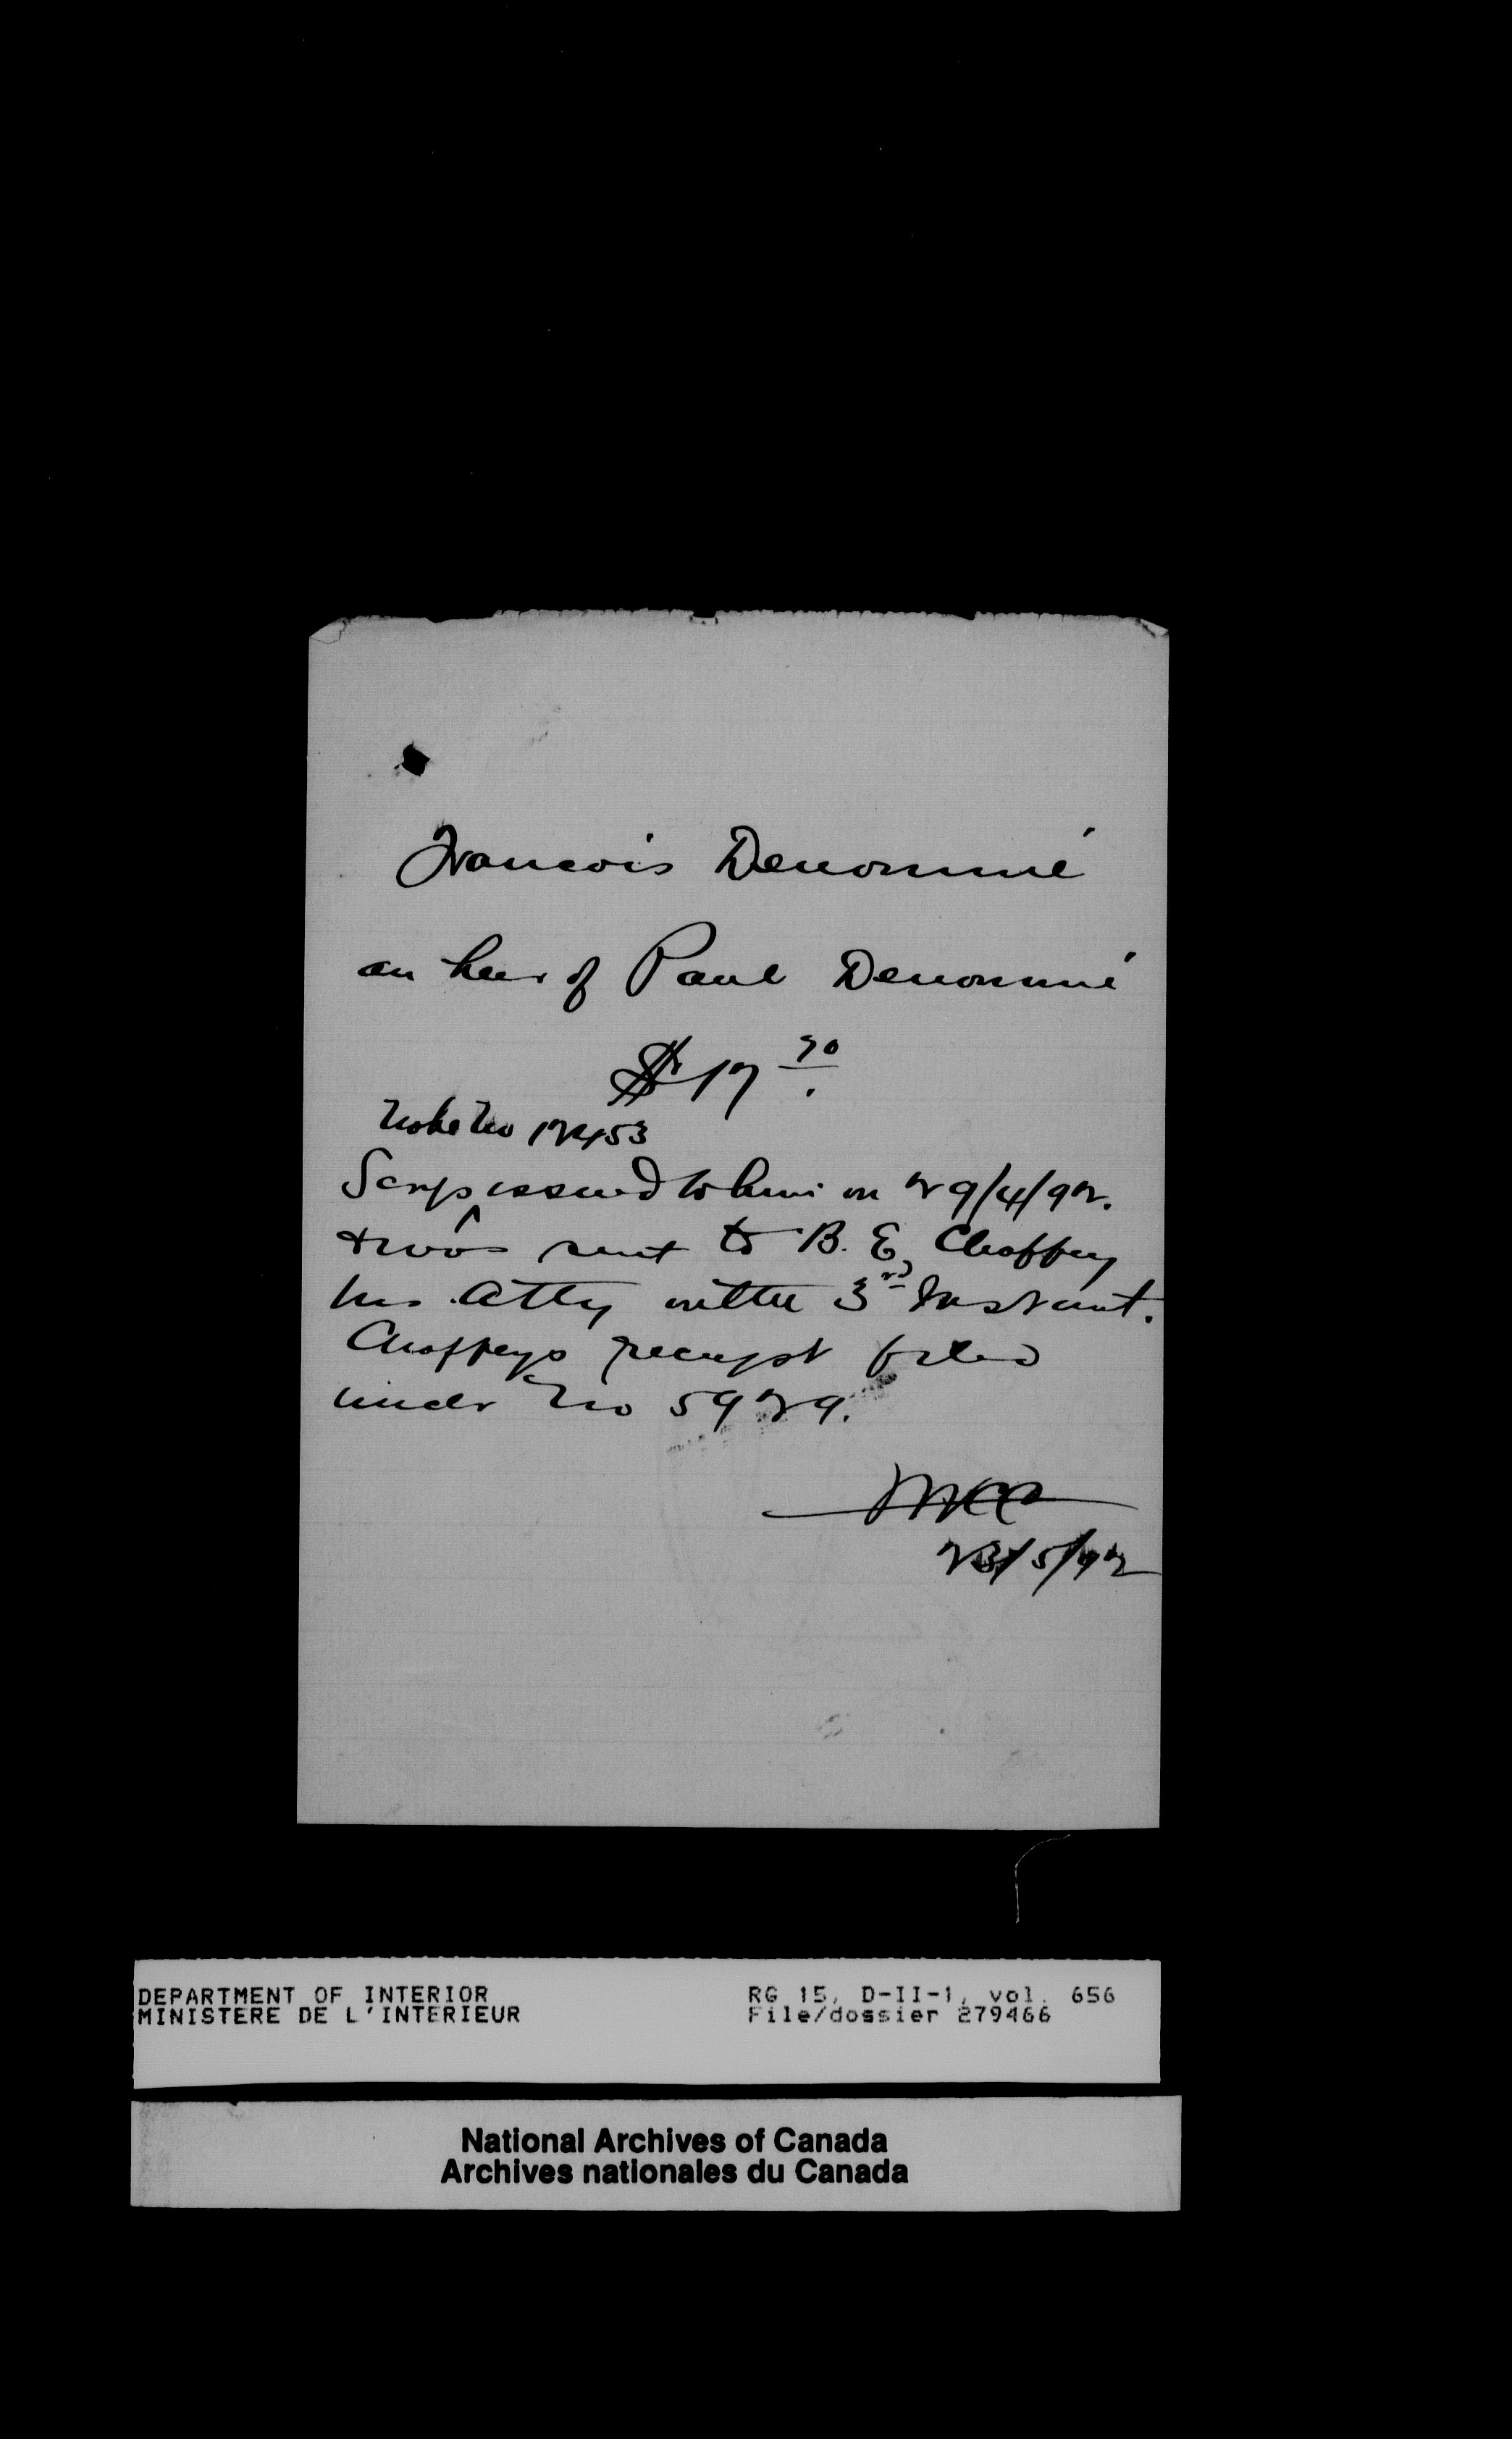 Francois Denommé
an heir of Paul Denommé
$17 70
Note No 12453
Scrip issued to him on 29/4/92.
& was sent to B. E. Chaffey
his Atty on the 3rd Instant.
Chaffeys receipt filed
under No 5929.
23/5/92
DEPARTMENT OF INTERIOR
MINISTERE DE L'INTERIEUR
RG 15, D-II-1, vol. 656
File/dossier 279466
National Archives of Canada
Archives nationales du Canada